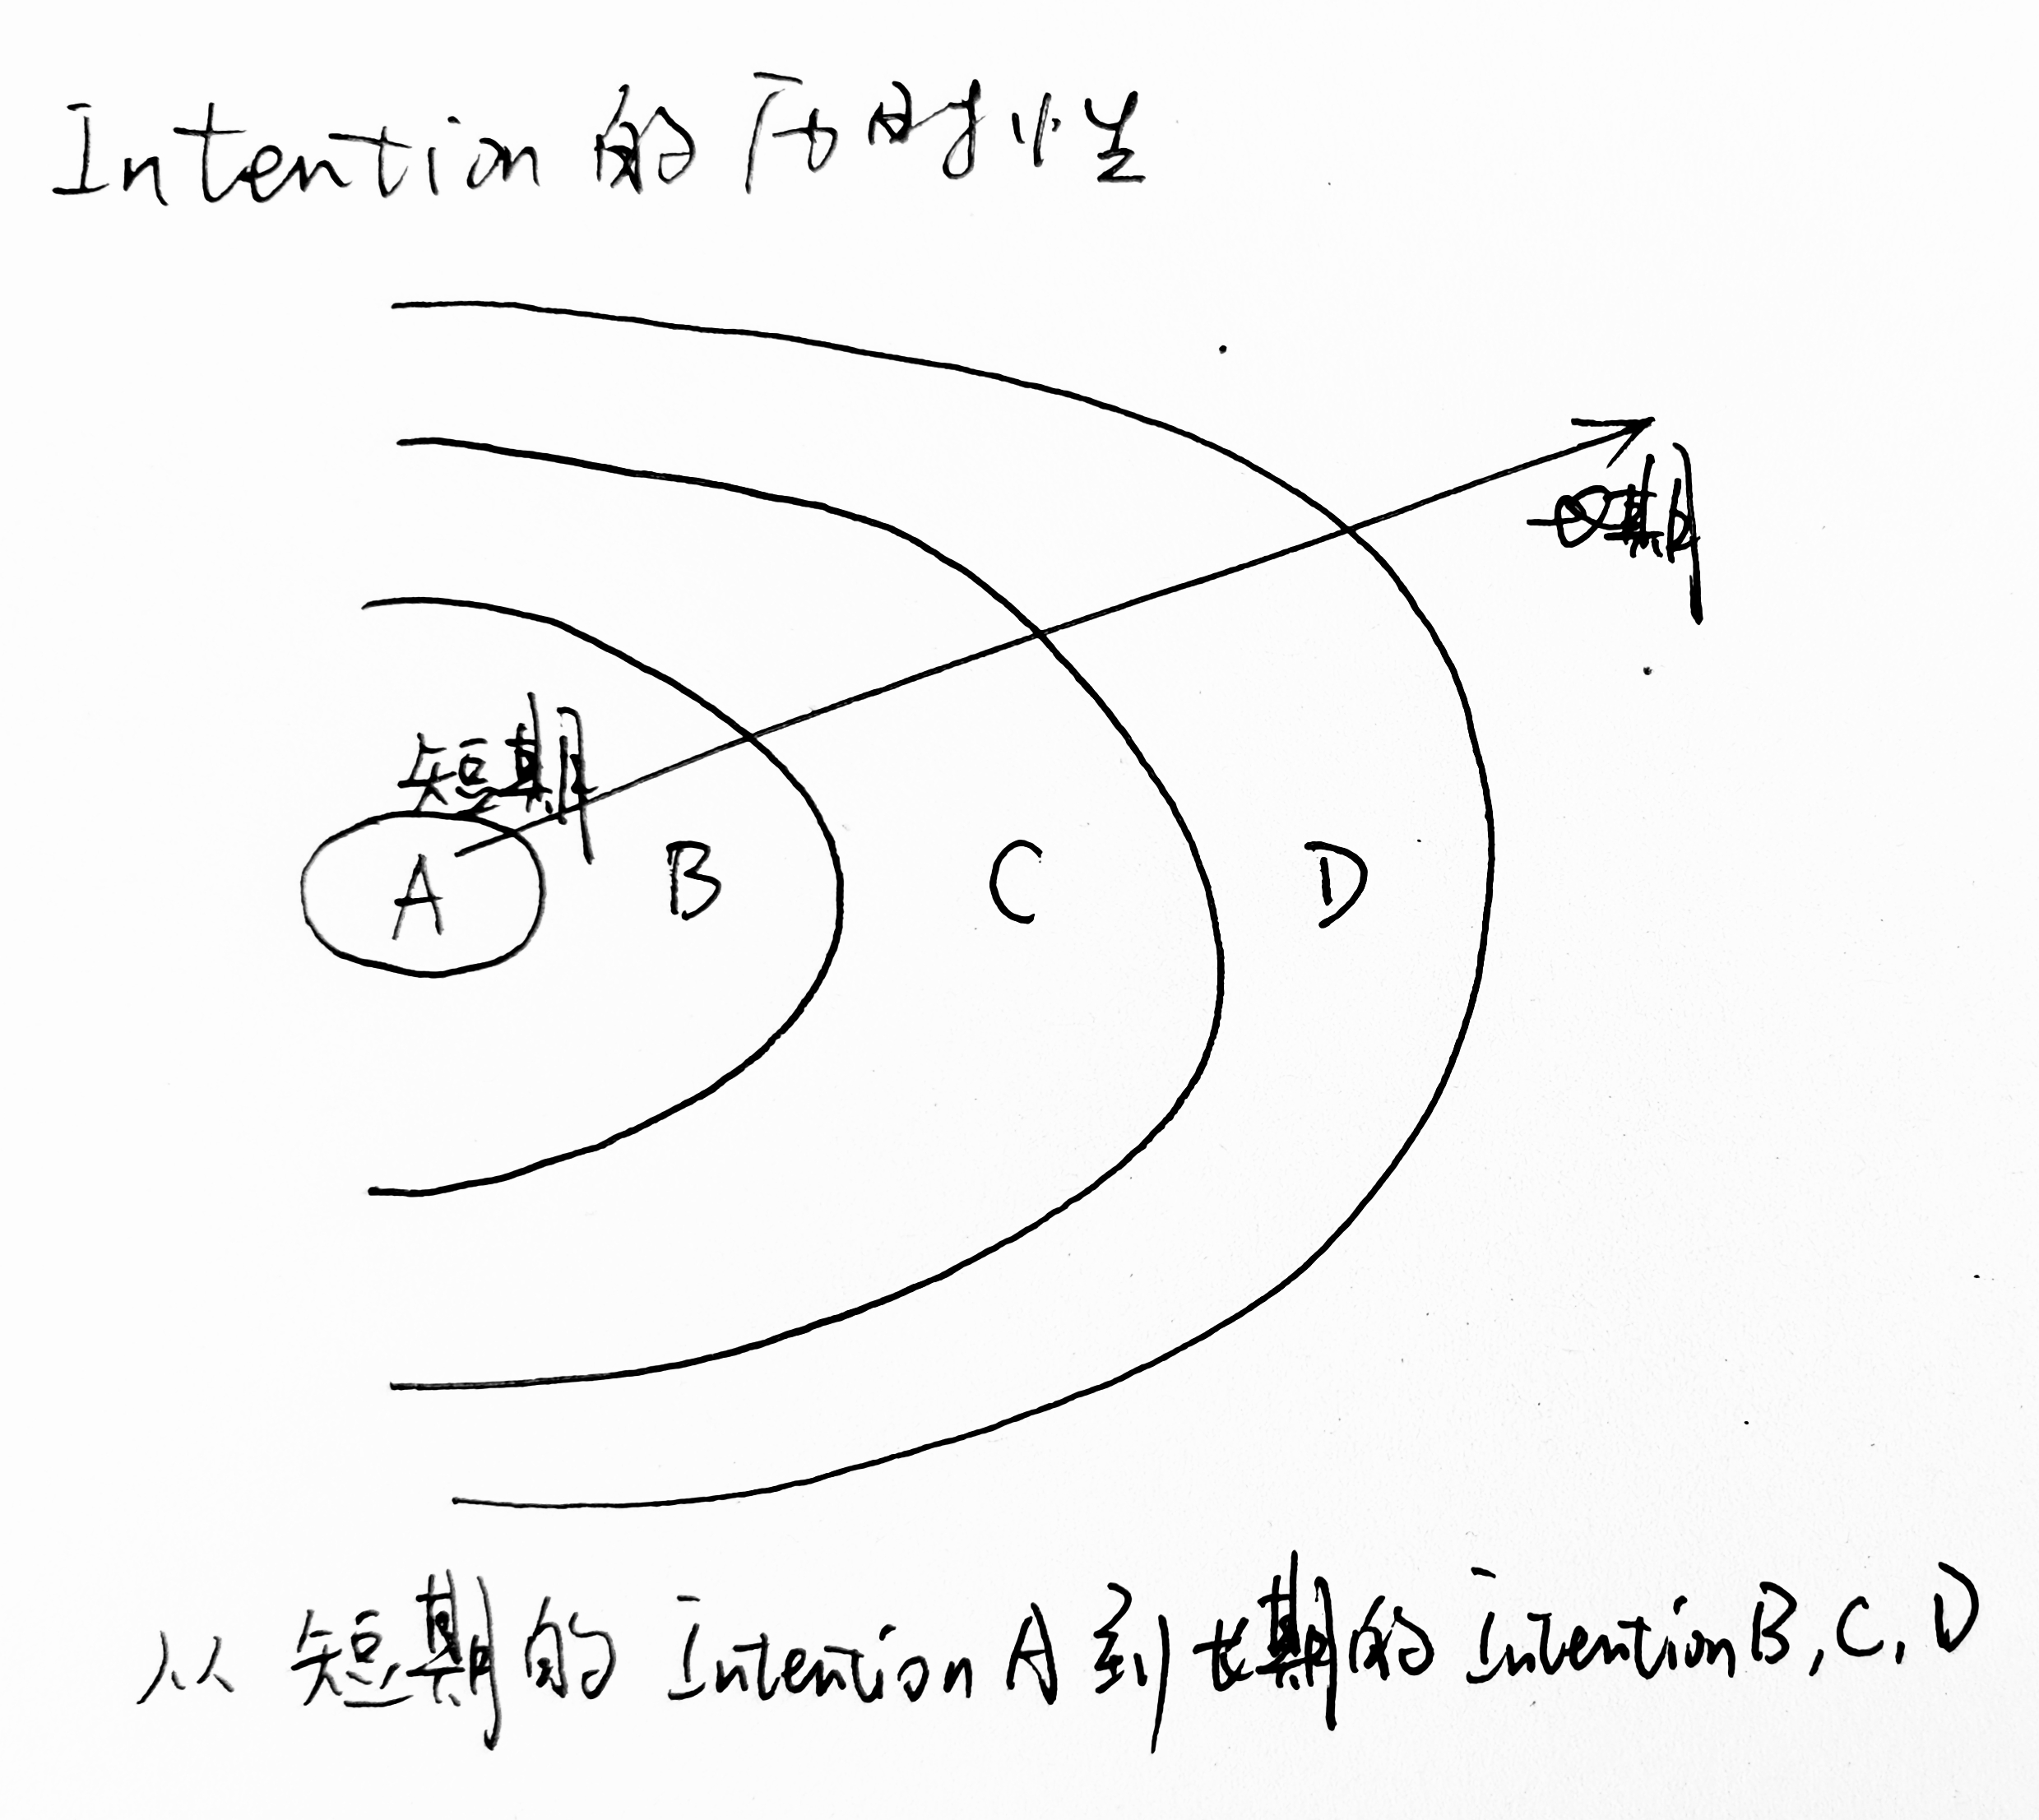 Intention 的历时性
短期
A B C D
从短期的 Intention A 到长期的 Intention B, C, D